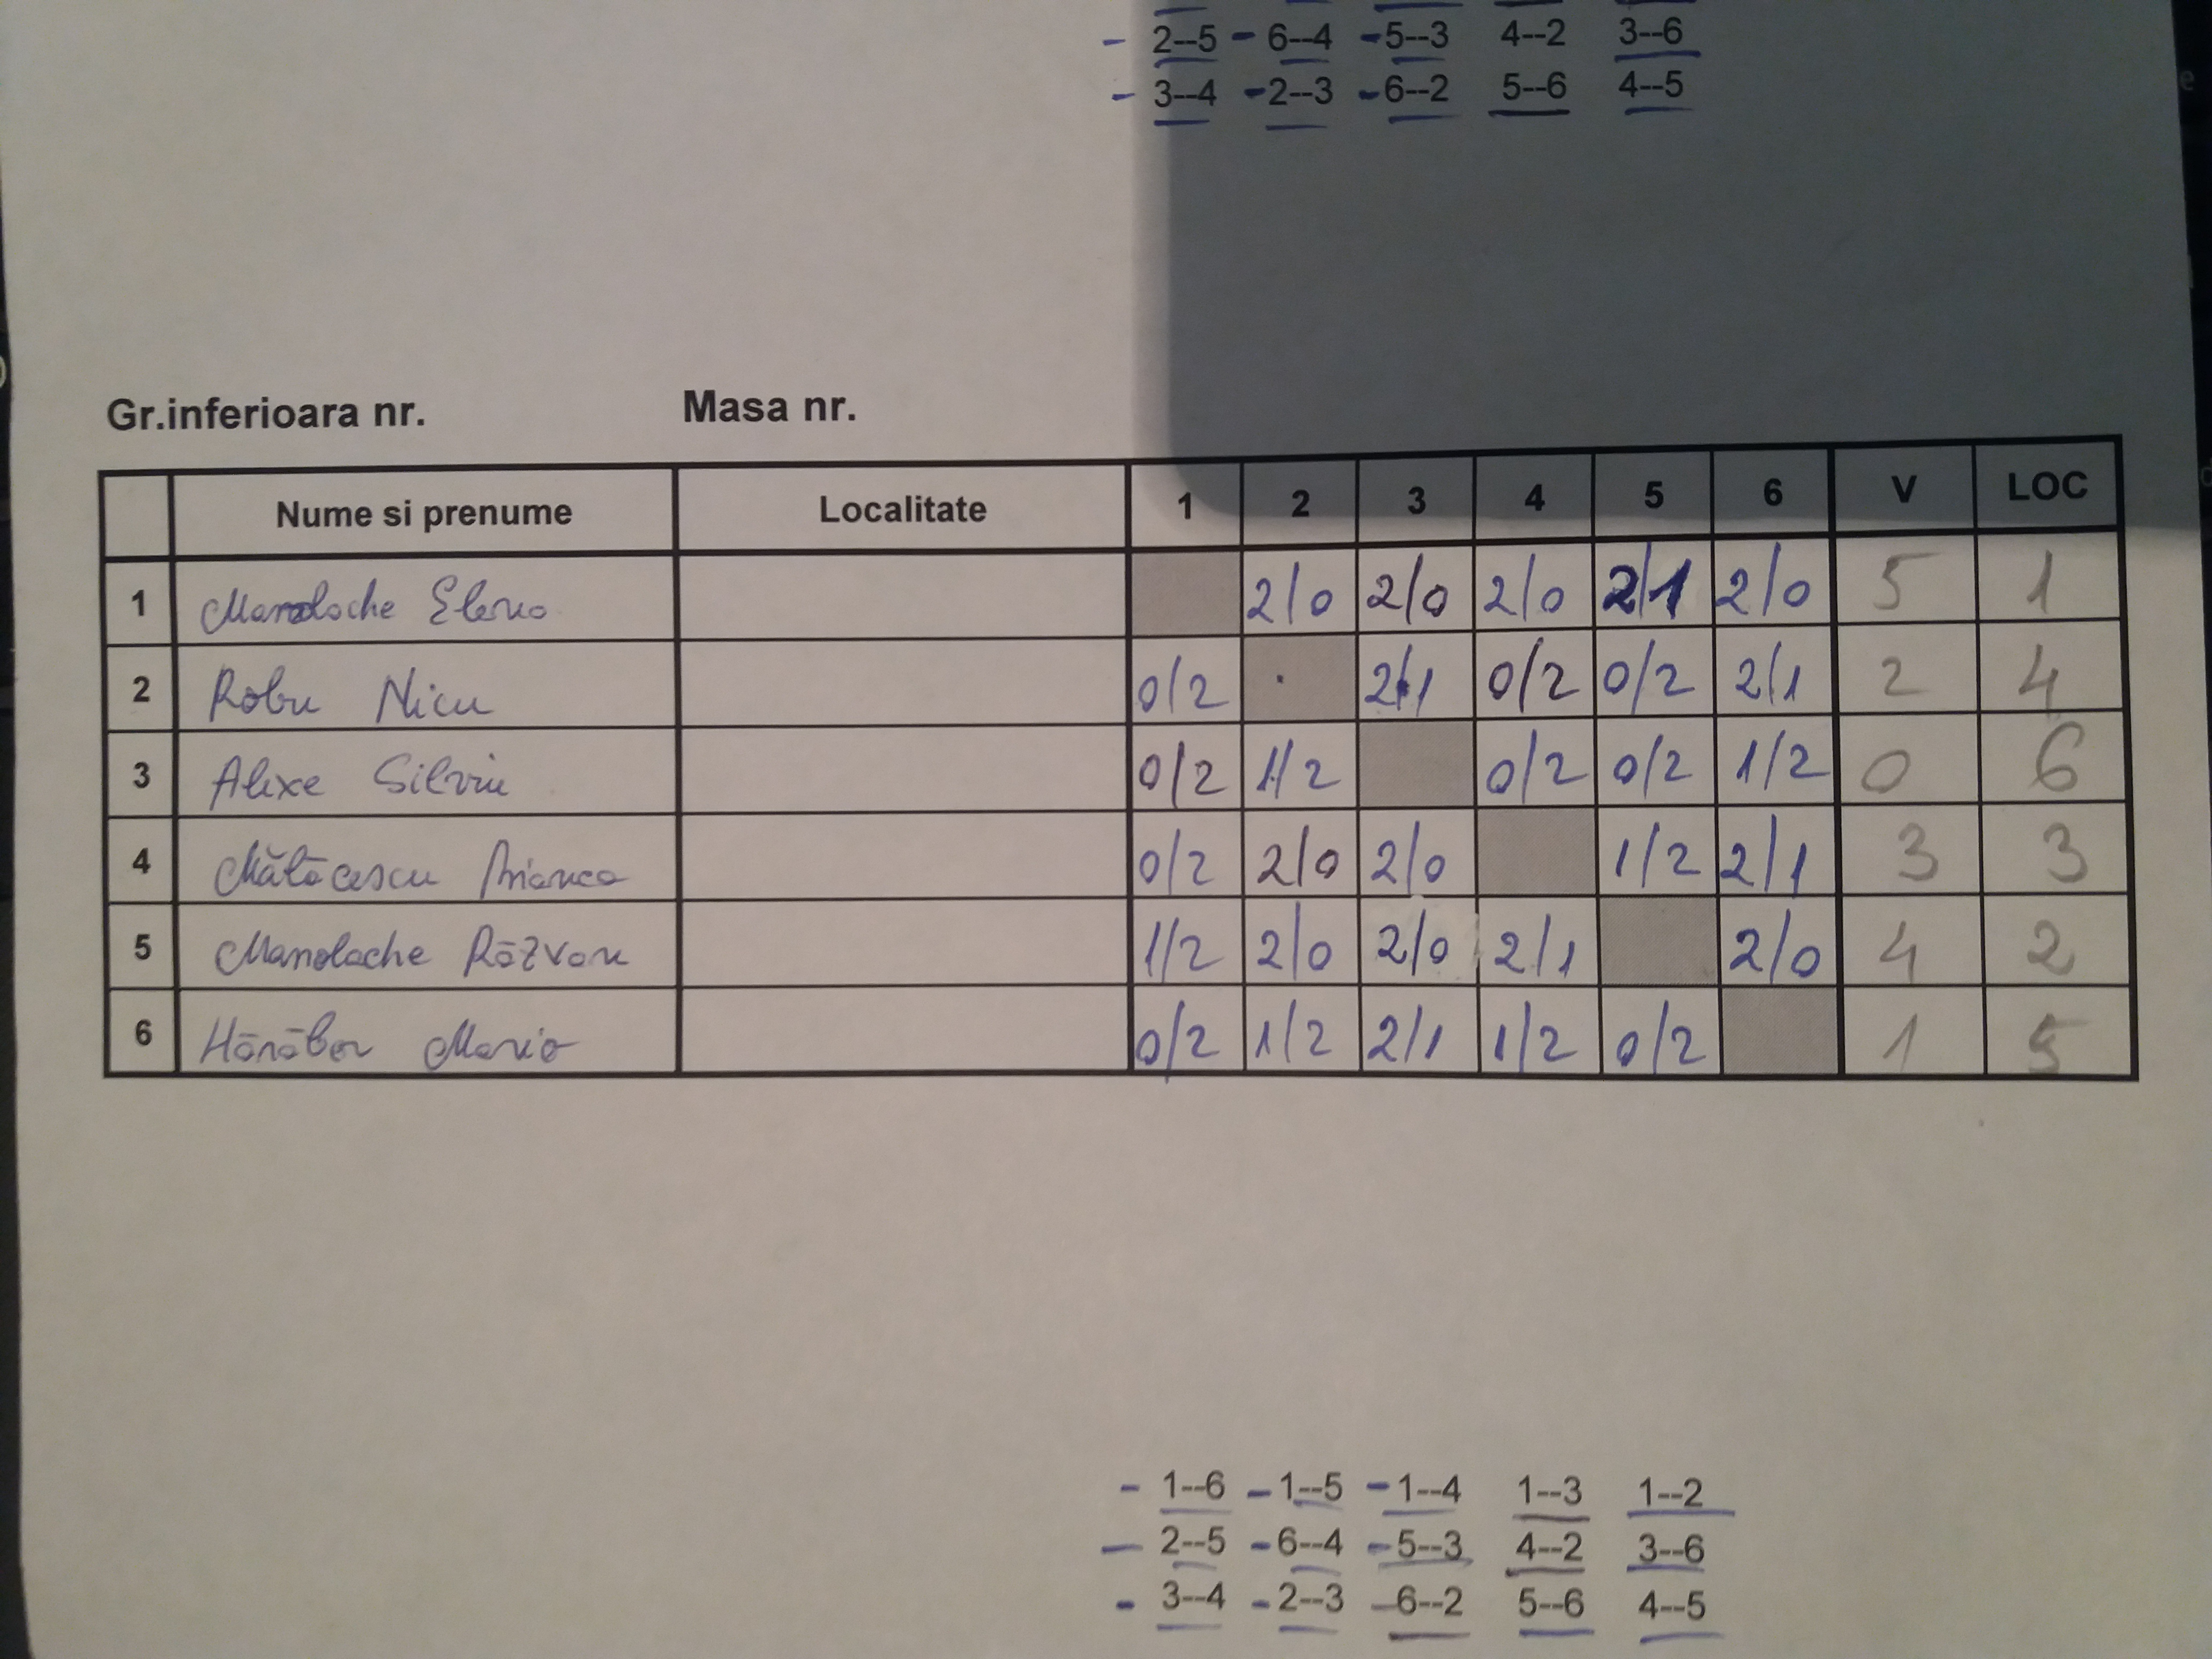 - 2--5 - 6--4 - 5--3 4--2 3--6
- 3--4 - 2--3 - 6--2 5--6 4--5
Gr.inferioara nr. Masa nr.
Nume si prenume Localitate 1 2 3 4 5 6 V LOC
1 Manolache Elena 2/0 2/0 2/0 2/1 2/0 5 1
2 Robu Nicu 0/2 2/1 0/2 0/2 2/1 2 4
3 Alexe Silviu 0/2 1/2 0/2 0/2 1/2 0 6
4 0/2 2/0 2/0 1/2 2/1 3 3
5 Manolache Răzvan 1/2 2/0 2/0 2/1 2/0 4 2
6 0/2 1/2 2/1 1/2 0/2 1 5
- 1--6 - 1--5 - 1--4 1--3 1--2
- 2--5 - 6--4 - 5--3 4--2 3--6
- 3--4 - 2--3 - 6--2 5--6 4--5